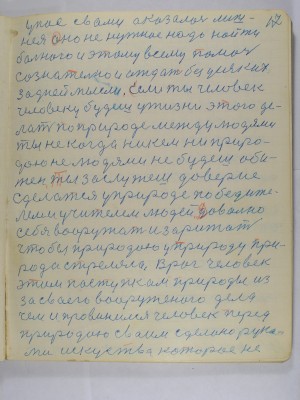 17
упое свами оказалас миш-
нея оно не нужное надо найти
балного и этому всему помоч
сознателно и отдат без всяких
задней мысли, Если ты человек
человеку будеш у жизни этого де-
лат по природе между людями
ты некогда никем ни приро-
дою не людями не будеш оби-
жен, ты заслужеш доверие
сделатся у природе победите-
лем и учителем людей доволно
себя вооружат и зарижат
чтобы природою у природу при-
рода стреляла, Враг человек
этим поступкам природы из
за сваего вооруженого дела
чем и провинился человек перед
природаю сваим сделано рука-
ми искуства которое не